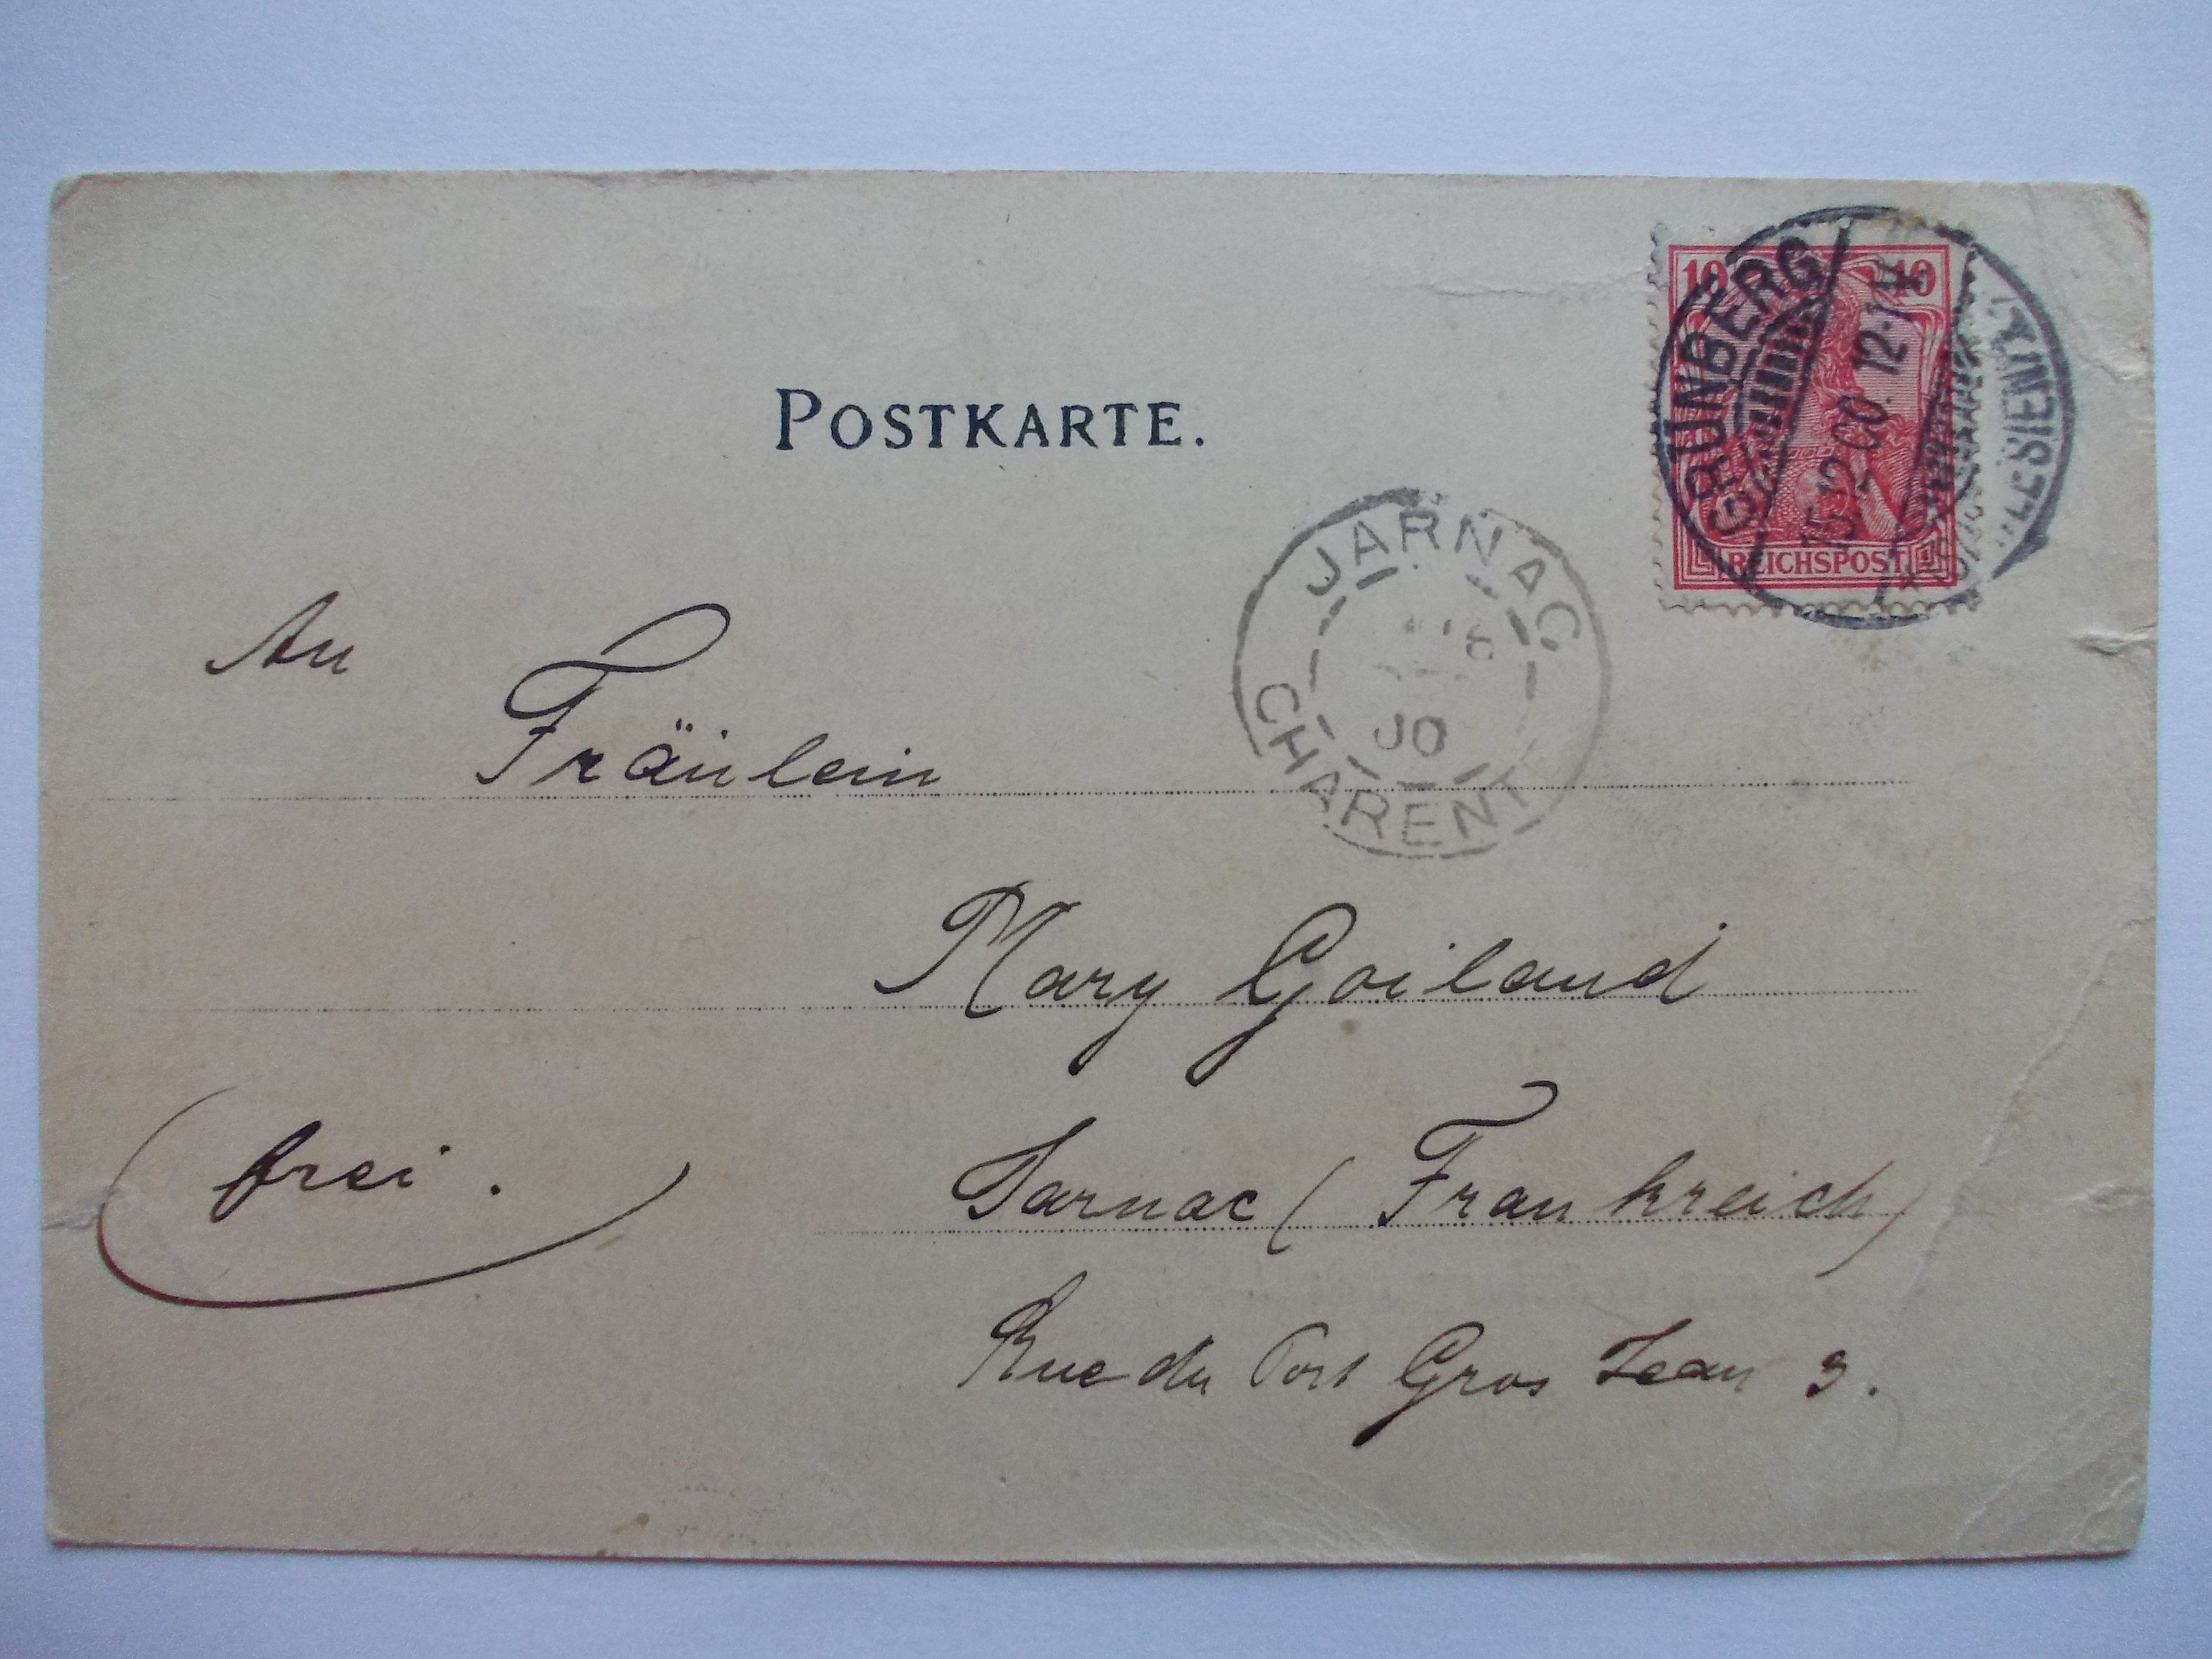 POSTKARTE.
10 10
REICHSPOST
GRÜNBERG
15.12.00. 12-1 N
JARNAC
CHARENTE
An
Fräulein
Mary Goiland
frei.
Jarnac (Frankreich)
Rue du Port Gros Jean 3.